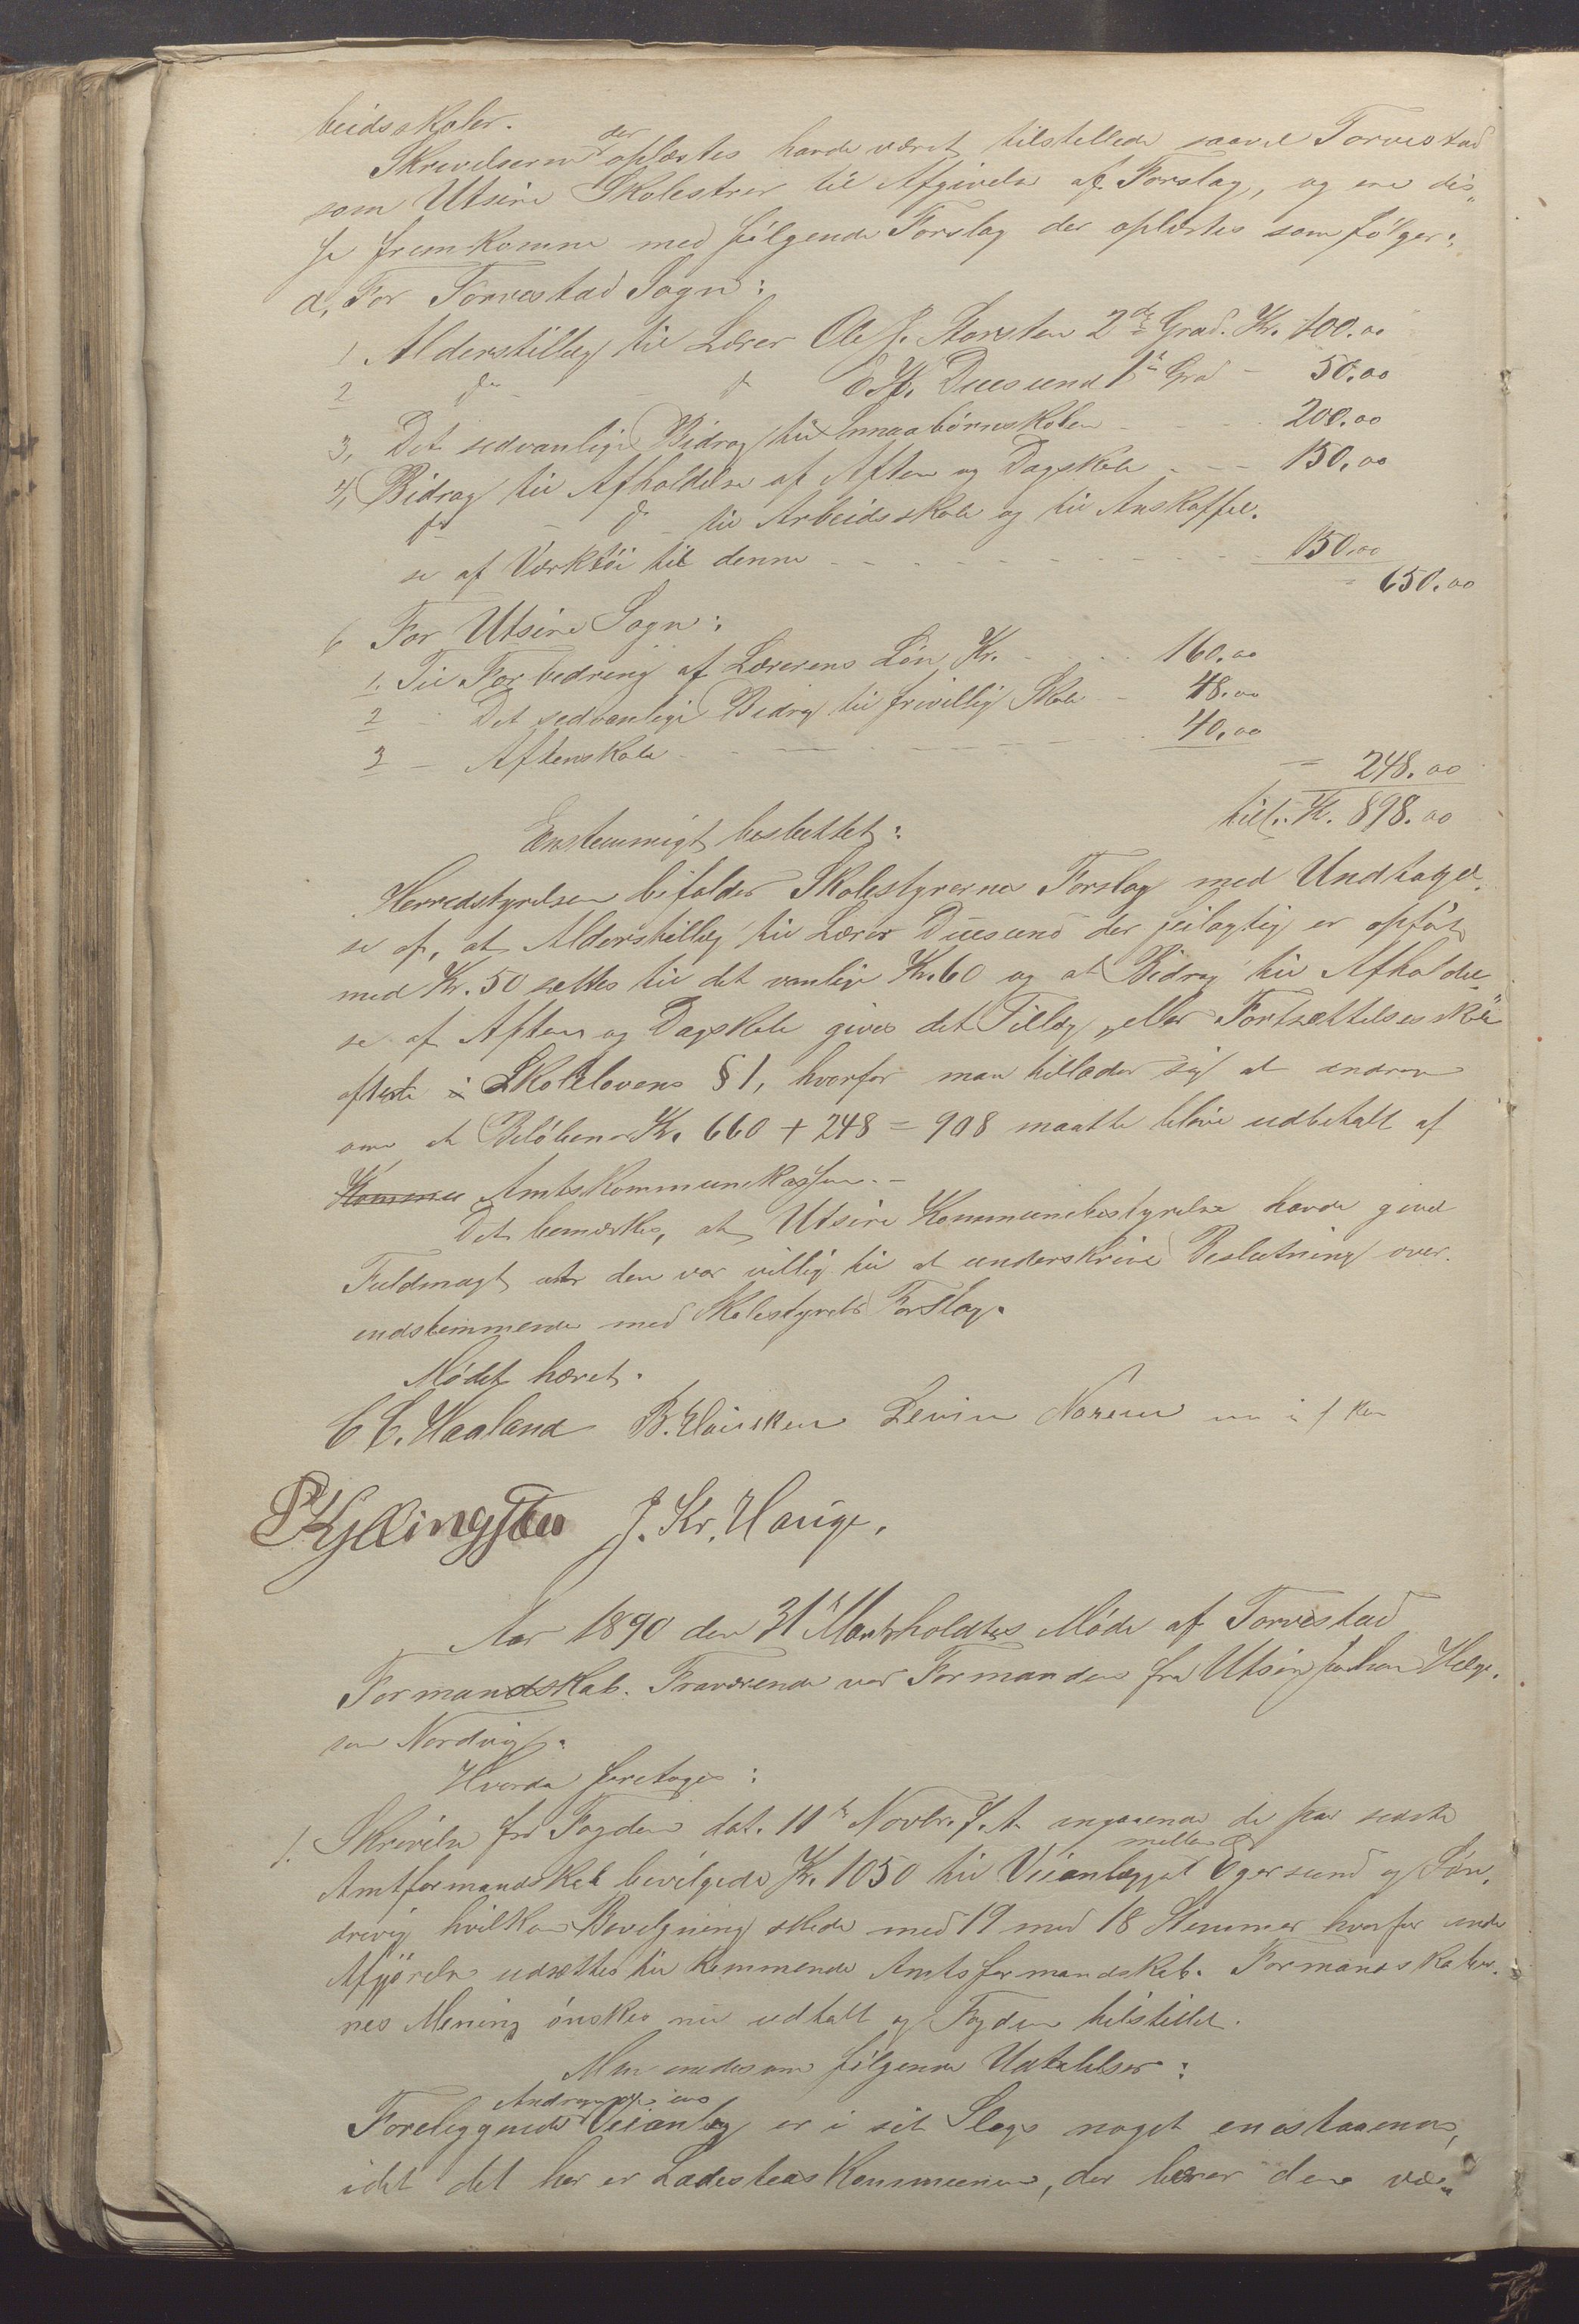 beidsskoler.
Skrivelserne der oplæstes havde været tilstillede saavel Torvestad
som Utsire Skolestyrer til Afgivelse af Forslag, og ere dis-
se fremkomne med følgende Forslag der oplæstes som følger:
a, For Torvestad Sogn:
1 Alderstillæg til Lærer Ole J. Storsten 2de Grad. Kr. 100.00
2 do - - do O. H. Duesund 1ste Grad - 50.00
3, Det sedvanlige Bidrag til Smaabørnsskolen - - - 200.00
4, Bidrag til Afholdelse af Aften og Dagskole - - - 150.00
do - do - til Arbeidsskole og til Anskaffel-
se af Værktøi til denne - - - - - - - 150.00
= 650.00
b For Utsire Sogn:
1. Til Forbedring af Lærerens Løn Kr. - - - 160.00
2 - Det sedvanlige Bidrag til frivillig Skole - 48.00
3 - Aftenskole - - - - - - - 40.00
= 248.00
tils. Kr. 898.00
Enstemmigt besluttet:
Herredstyrelsen bifalder Skolestyrerne Forslag med Undtagel-
se af, at Alderstillæg til Lærer Duesund der feilagtig er opført
med Kr. 50 sættes til det vanlige Kr. 60 og at Bidrag til Afholdel-
se af Aften og Dagskole gives det Tillæg "eller Fortsættelsesskole"
efter Skolelovens § 1, hvorfor man tillader sig at andrage
om at Beløbene Kr. 660 + 248 = 908 maatte blive udbetalt af
Kommu Amtskommunekassen.-
Det bemærkes, at Utsire Kommunebestyrelse havde givet
Fuldmagt at den var villig til at underskrive Beslutning over-
endstemmende med Skolestyrets Forslag.
Mødet hævet.
C C. Haaland B. Hauske Levin Noreem
P Kyllingstad J. Kr. Hauge.
Aar 1890 den 31te Marts holdtes Møde af Torvestad
Formandskab. Fraværende var Formanden fra Utsire Johan Helge-
sen Nordvig.
Hvorda foretages:
1. Skrivelse fra Fogden dat. 11te Novbr. f. A. angaaende de paa sidste
Amtformandskab bevilgede Kr. 1050 til Veianlægget mellem Egersund og Søn-
drevig hvilken Bevilgning skede med 19 mod 18 Stemmer hvorfor ende
Afgjørelse udsættes til kommende Amtsformandskab. Formandskaber-
nes Mening ønskes nu udtalt og Fogden tilstillet.
Man enedes om følgende Udtalelser:
Foreliggende Andragende om Veianlæg er i sit Slags noget enestaaende,
idet det her er Ladesteds Kommunen, der bærer den væ-